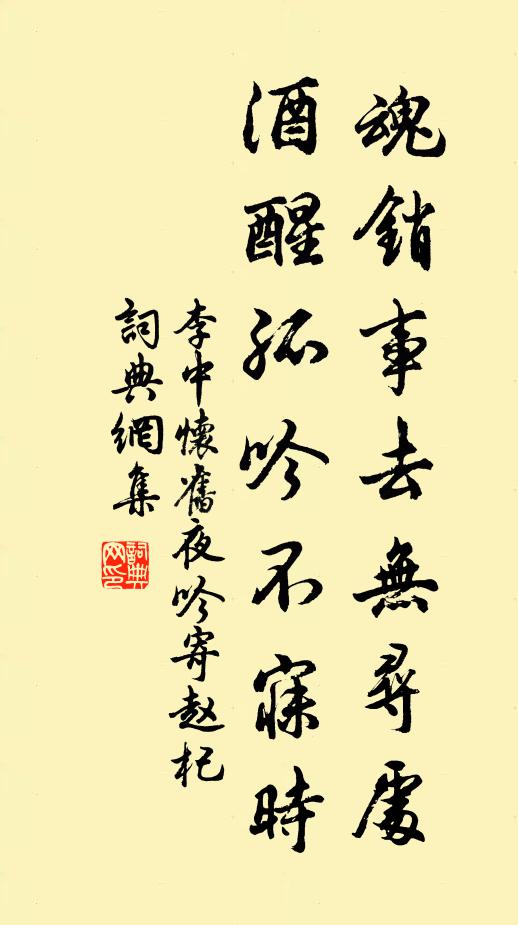 魂銷事去無尋處
酒醒孤吟不寐時
李中懷舊夜吟寄赵杞
詞典網集
詞典網印